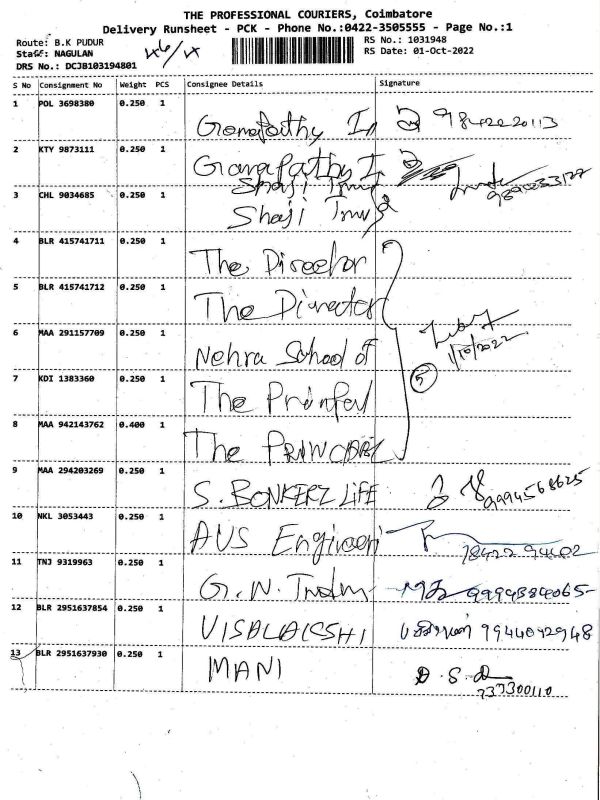 THE PROFESSIONAL COURIERS, Coimbatore
Delivery Runsheet - PCK - Phone No.:0422-3505555 - Page No.:1
Route: B.K PUDUR
RS No.: 1031948
Staff: NAGULAN
RS Date: 01-Oct-2022
DRS No.: DCJB103194801
S No Consignment No Weight PCS Consignee Details Signature
1 POL 3698380 0.250 1 Ganapathy In 9842220113
2 KTY 9873111 0.250 1 Ganapathy I
Shaji Inw
3 CHL 9034685 0.250 1 Shaji Inw
4 BLR 415741711 0.250 1 The Director
5 BLR 415741712 0.250 1 The Director
6 MAA 291157709 0.250 1 Nehra School of 1/10/2022
7 KDI 1383360 0.250 1 The 5
8 MAA 942143762 0.400 1 The PRINCIPAL
9 MAA 294203269 0.250 1 S. BONKERZ LIFE 9994568625
10 NKL 3053443 0.250 1 AVS Engineeri
11 TNJ 9319963 0.250 1 G.N. 9994384065
12 BLR 2951637854 0.250 1 VISALAKSHI 9944042948
13 BLR 2951637930 0.250 1 MANI D.S.